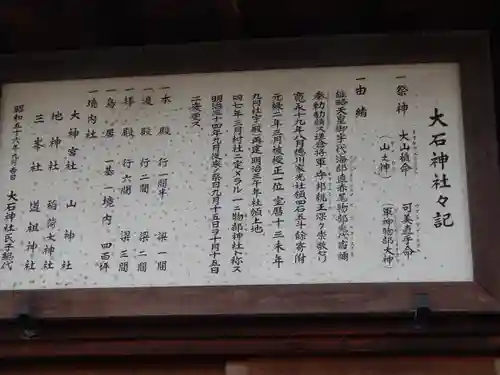 大石神社々記
一祭神 大山積命 可美真手命
(山之神) (軍神物部大神)
一由緒
雄略天皇御宇代海部直赤尾物部
奉勅勧請ス
寛永十九年八月徳川家光社領四石五斗餘寄附
元禄二年三月被授正一位 宝暦十三未年
九月社宇殿再建明治三年年社領上地
四七年三月村社ニ定メラル 一ニ物部神社ト称ス
明治三十四年九月従来ノ祭日九月十五日ヲ十月十五日
ニ変更ス
一本殿 行一間半 梁一間
一造殿 行二間 梁二間
一拝殿 行六間 梁三間
一鳥居 一基 一境内 四百坪
一境内社
大神宮社 山神社
地神社 稲荷大神社
三峯社 道祖神社
昭和五十六年九月吉日 大石神社氏子総代